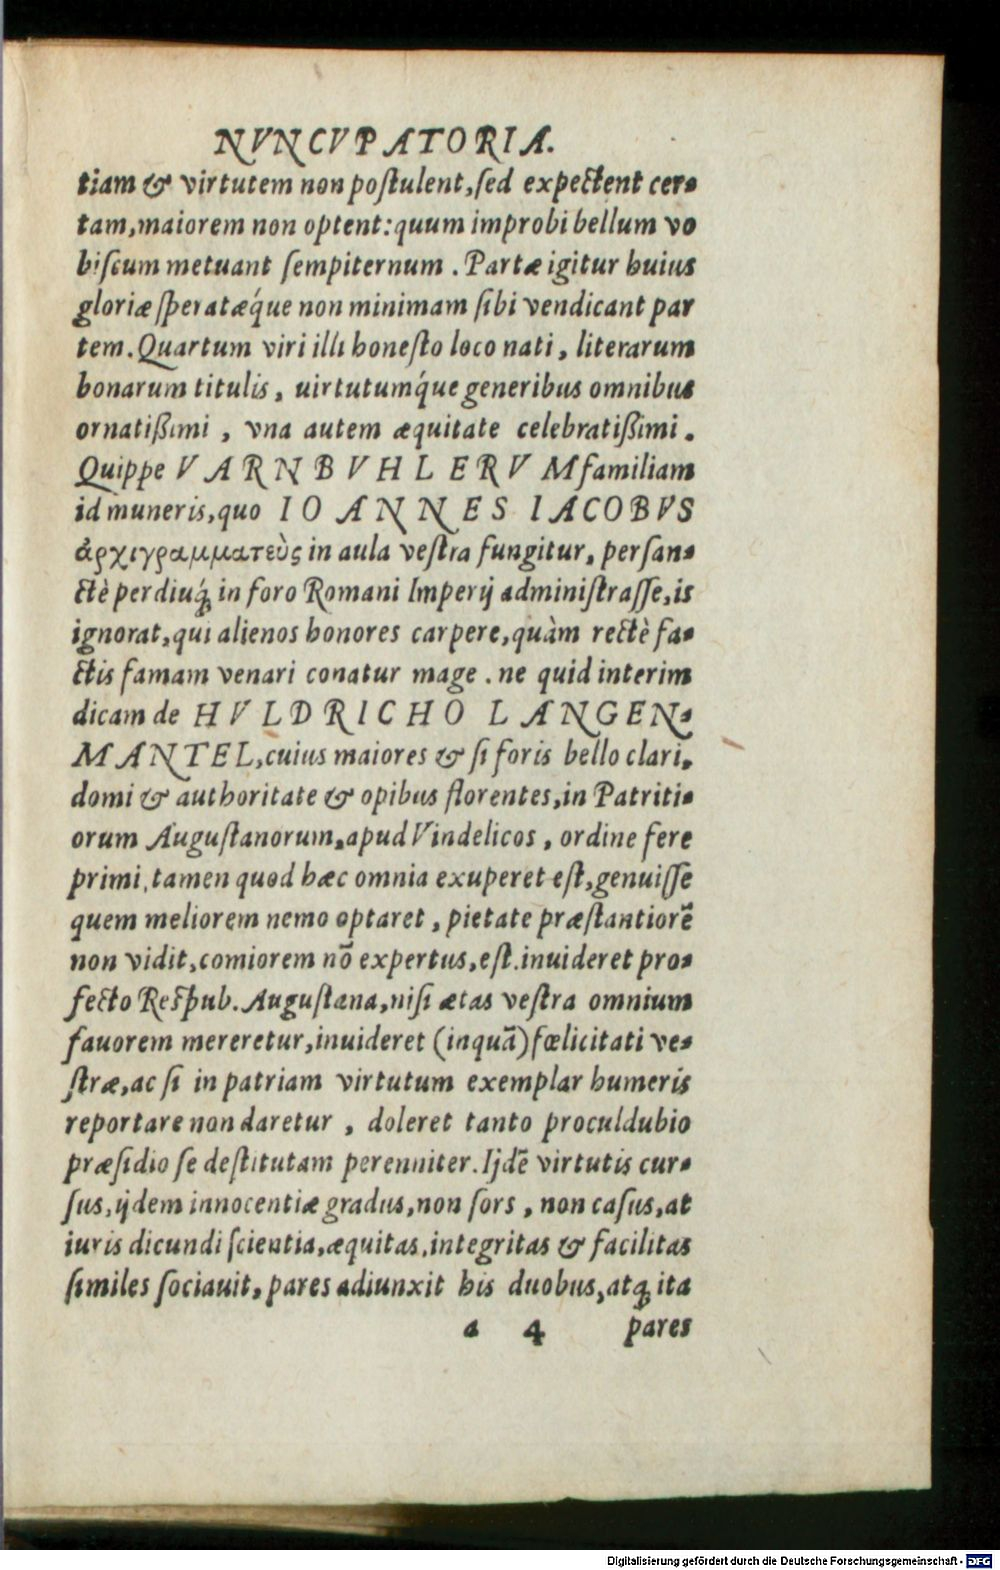 NVNCVPATORIA.
tiam & virtutem non poſtulent, ſed expectent cer-
tam, maiorem non optent: quum improbi bellum vo
biſcum metuant ſempiternum. Partæ igitur huius
gloriæ ſperatæq́ue non minimam ſibi vendicant par
tem. Quartum viri illi honeſto loco nati, literarum
bonarum titulis, uirtutumq́ue generibus omnibus
ornatißimi, vna autem æquitate celebratißimi.
Quippe VARNBVHLERVM familiam
id muneris, quo IOANNES IACOBVS
ἀρχιγραμματεὺς in aula veſtra fungitur, perſan-
ctè perdiuq́; in foro Romani Imperij adminiſtraſſe, is
ignorat, qui alienos honores carpere, quàm rectè fa-
ctis famam venari conatur mage. ne quid interim
dicam de HVLDRICHO LANGEN-
MANTEL, cuius maiores & ſi foris bello clari,
domi & authoritate & opibus florentes, in Patriti-
orum Auguſtanorum, apud Vindelicos, ordine fere
primi, tamen quod hæc omnia exuperet eſt, genuiſſe
quem meliorem nemo optaret, pietate præſtantiorē
non vidit, comiorem nō expertus, eſt. inuideret pro-
fecto Reſpub. Auguſtana, niſi ætas veſtra omnium
fauorem mereretur, inuideret (inquā) fœlicitati ve-
ſtræ, ac ſi in patriam virtutum exemplar humeris
reportare non daretur, doleret tanto proculdubio
præſidio ſe deſtitutam perenniter. Ijdē virtutis cur-
ſus, ijdem innocentiæ gradus, non ſors, non caſus, at
iuris dicundi ſcientia, æquitas, integritas & facilitas
ſimiles ſociauit, pares adiunxit his duobus, atq; ita
a 4 pares
Digitalisierung gefördert durch die Deutsche Forschungsgemeinschaft - DFG